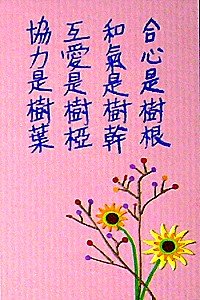 合心是樹根
和氣是樹幹
互愛是樹椏
協力是樹葉